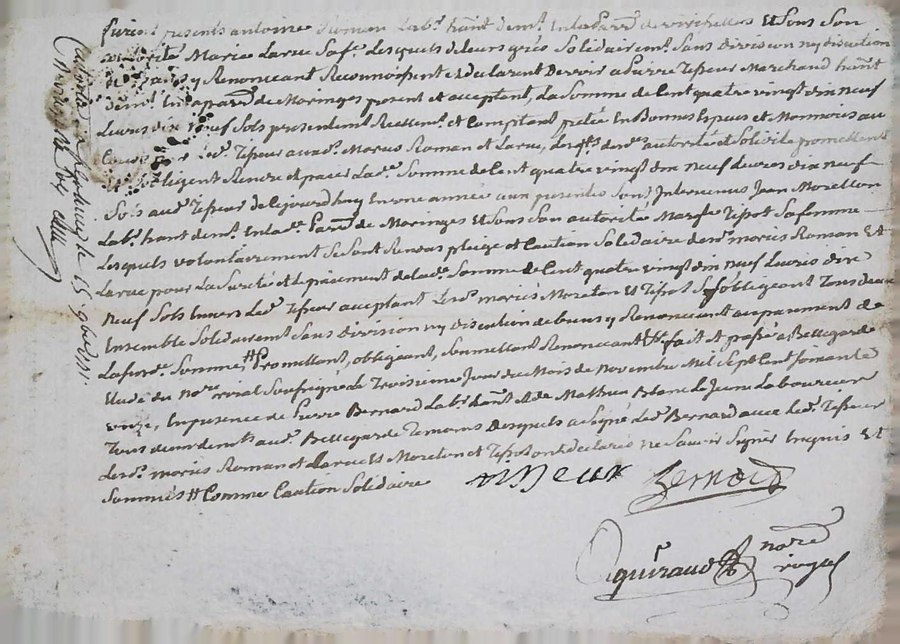 furent presents antoine Roman Lab.r hant demt. En la par.e de virichelles Et sous son
autorité Marie Larue sa f.e Lesquels de leurs grés Solidairemt. Sans division ny discution
de biens y Renonceant Reconnoissent et declarent Devoir a Pierre Tisseur Marchand hant
demt. En la par.e de Moringes present et acceptant, La Somme de Cent quatre vingt dix neuf
Livres dix neuf Sols presentemt Reellemt. et Comptant, pretée En bonnes Especes et Monnoies au
Cours par led.t Tisseur auxd. Mariés Roman et Larue, Lesq.ls de meme autorité et Solidité promettent
et obligent Rendre et paier Lad.e Somme de Cent quatre vingt dix neuf Livres dix neuf
Sols aud.t Tisseur de Cejourdhuy En une année aux presentes Sont Intervenus Jean Moretton
Lab.r hant demt. En lad.e Par.e de Moringes Et Sous Son autorité Marg.te Tisot Sa femme
Lesquels volontairement Se Sont Rendus pleige et Caution Solidaire desd. mariés Roman Et
Larue pour La Sureté et le paiement de lad.e Somme de Cent quatre vingt dix neuf Livres dix
neuf Sols Envers Led.t Tisseur acceptant Lesd. mariés Moreton Et Tisot S'obligeant Tous deux
Ensemble Solidairemt Sans division ny discution de biens y Renonceant au paiement de
La susd.e Somme, # Promettant, obligeant, Soumettant Renonceant &c fait et passé a Bellegarde
Etude du No.re roial Soussigné Le Troisieme Jour du Mois de Novembre Mil Sept Cent Soixante
onze, En presence de Pierre Bernard Lab.r dudit Lieu de Mathieu Blanc Le Jeune Laboureur
Tous deux demts aud.t Bellegarde Temoins desquels a Signé Led.t Bernard avec led.t Tisseur
Lesd. mariés Roman et Larue Et Moreton et Tisot ont declaré ne Savoir Signer Enquis Et
Sommés # Comme Caution Solidaire
Bernard
Guiraud nore
royal